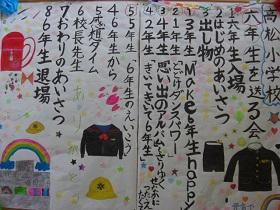 高松小学校
六年生を送る会
1 六年生入場
2 はじめのあいさつ
3 出し物
①3年生「Make6年生happy」
②1年生「とどけ!ダンスパワー」
③4年生「思い出のアルバム」
④2年生「きいてきいて6年生」
⑤5年生「6年生のえいきょう
4 6年生から
5 感想タイム
6 校長先生
7 おわりのあいさつ
8 6年生退場